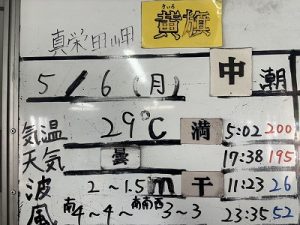 真栄田岬
きいろ
黄旗
5/6(月) 中潮
気温 29℃ 満 5:02 200
天気 曇 17:38 195
波 2~1.5m 干 11:23 26
風 南4~4~南南西3~3 23:35 52